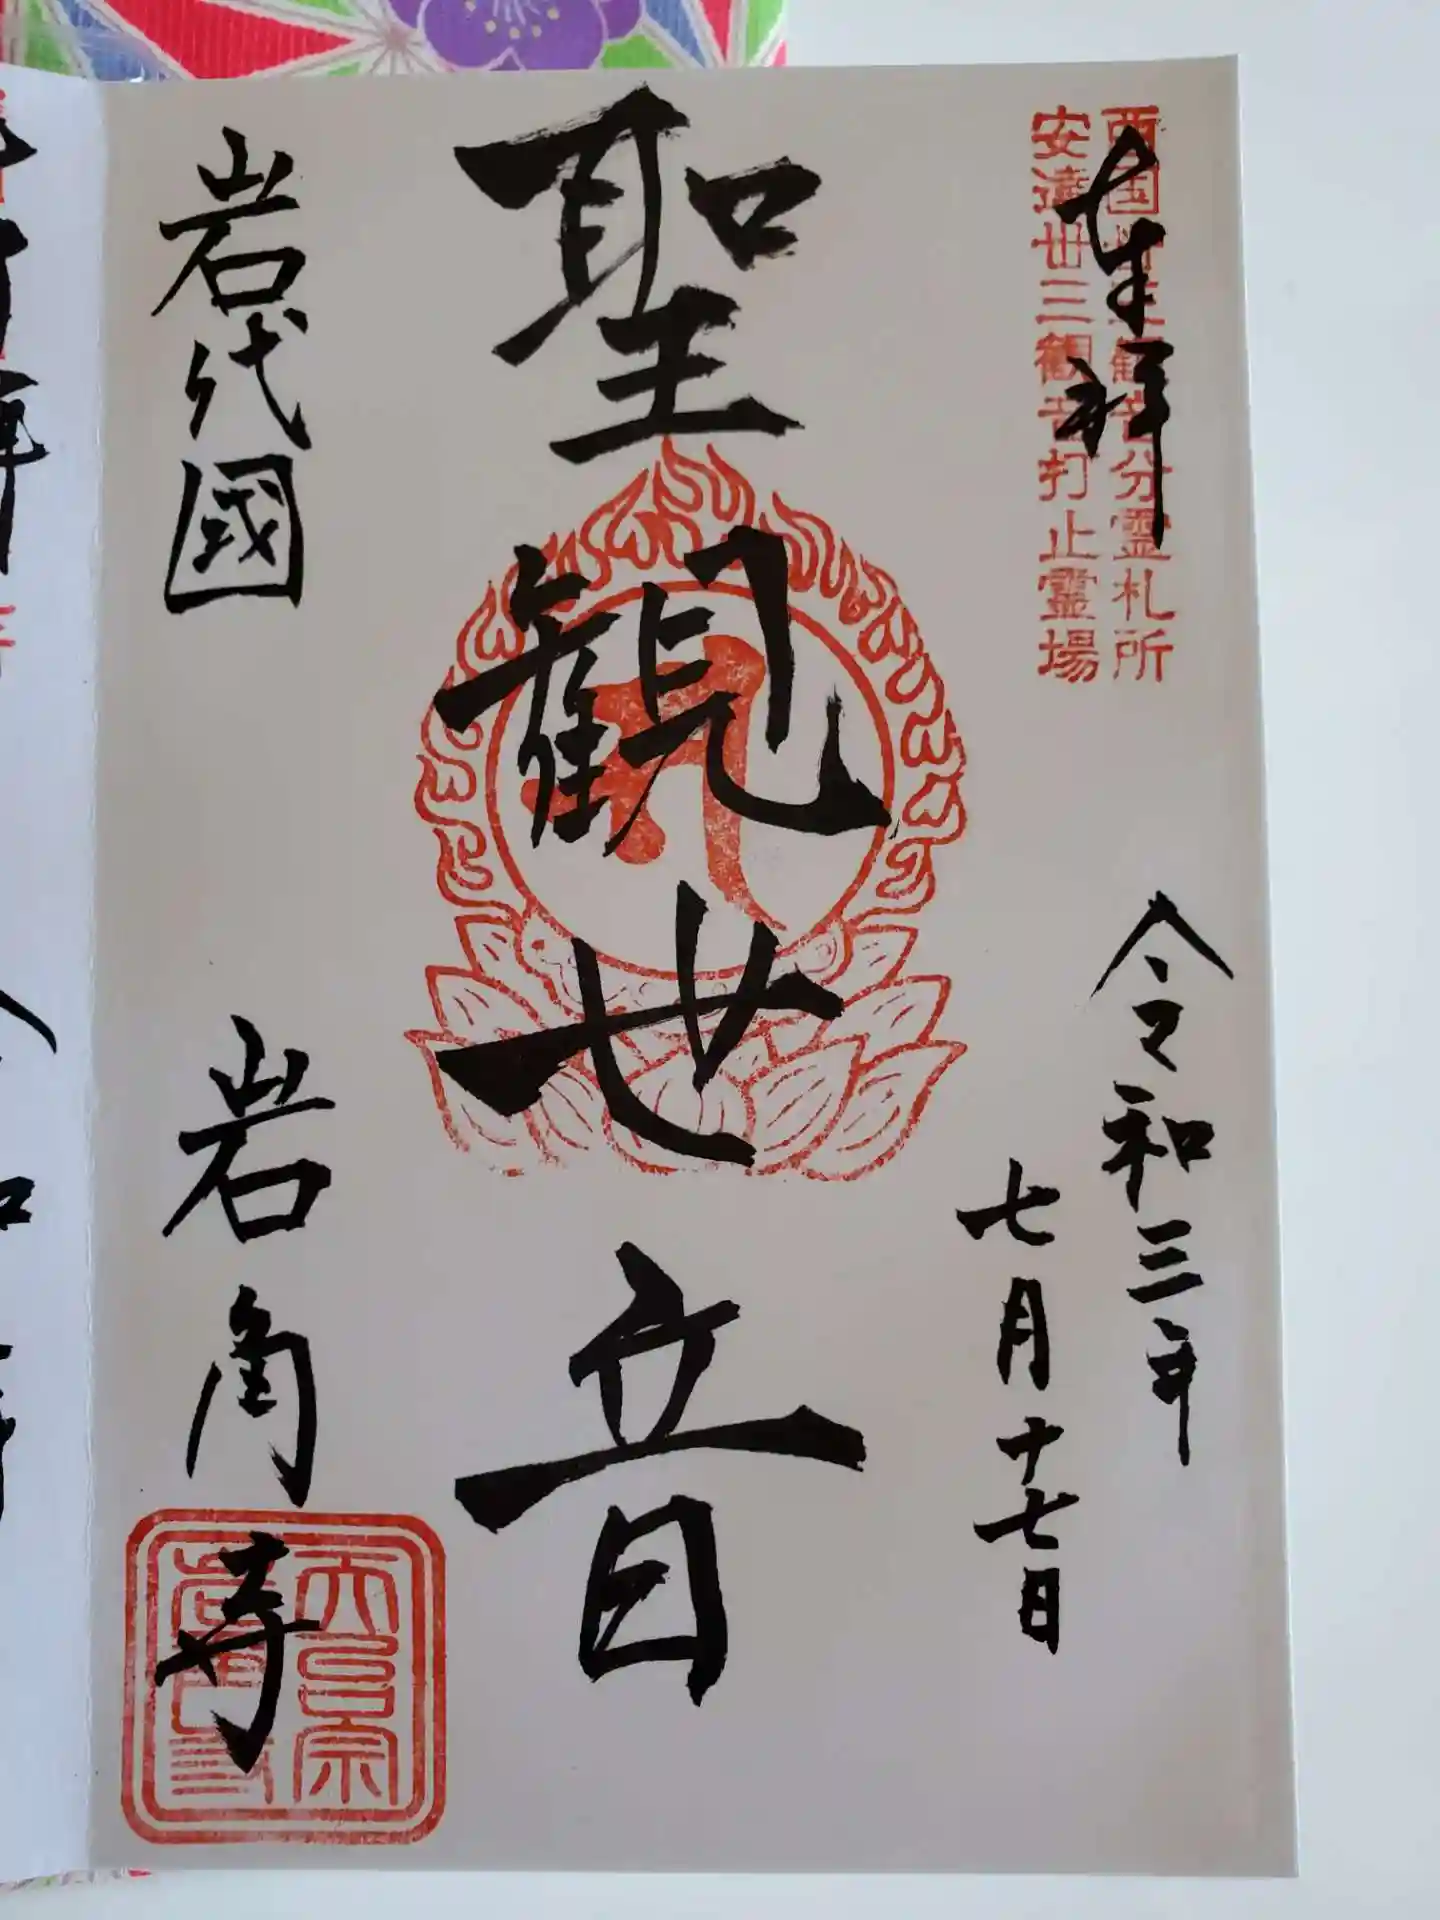 奉拝
西国卅三観音分霊札所
安達卅三観音打止霊場
令和三年
七月十七日
聖観世音
岩代國
岩角寺
天台宗